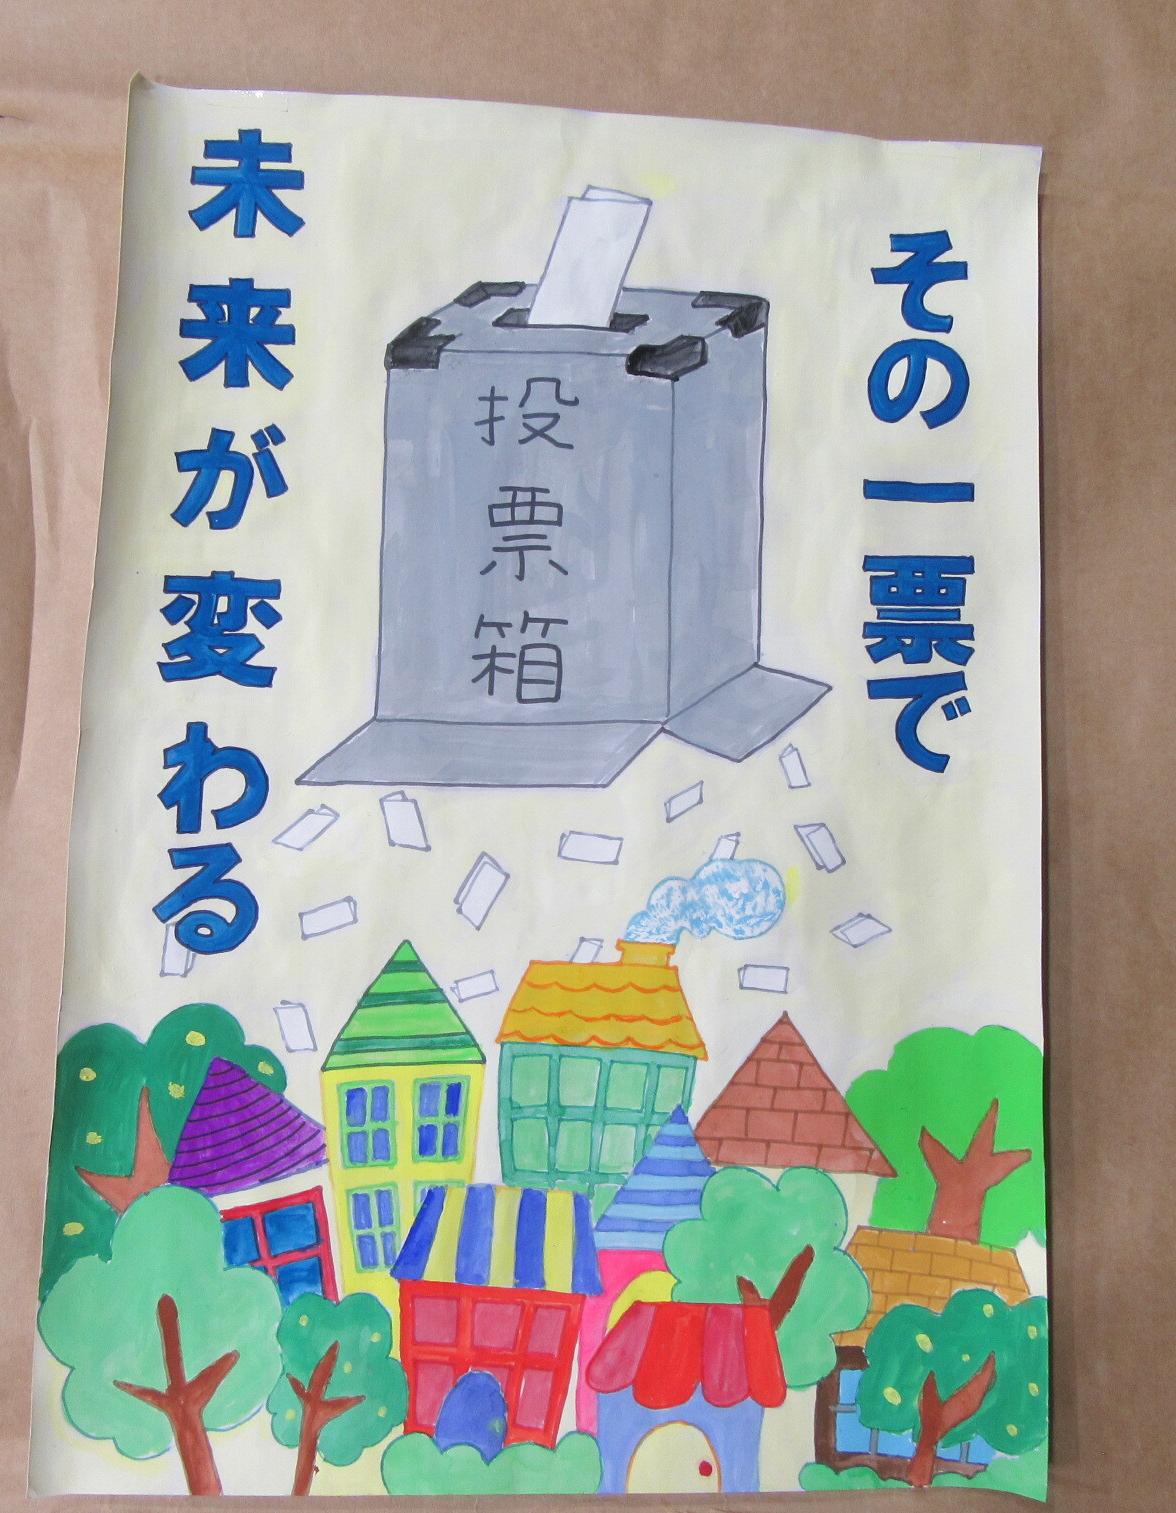 その一票で
未来が変わる
投票箱